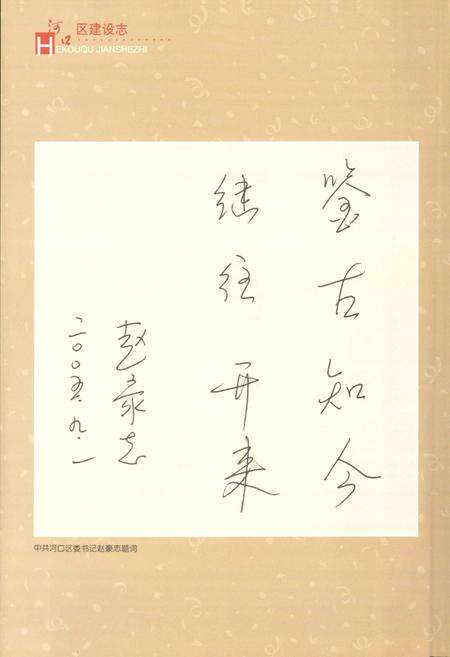 河口区建设志
HEKOUQU JIANSHEZHI
鉴古知今
继往开来
赵豪志
二〇〇五.九.一
中共河口区委书记赵豪志题词